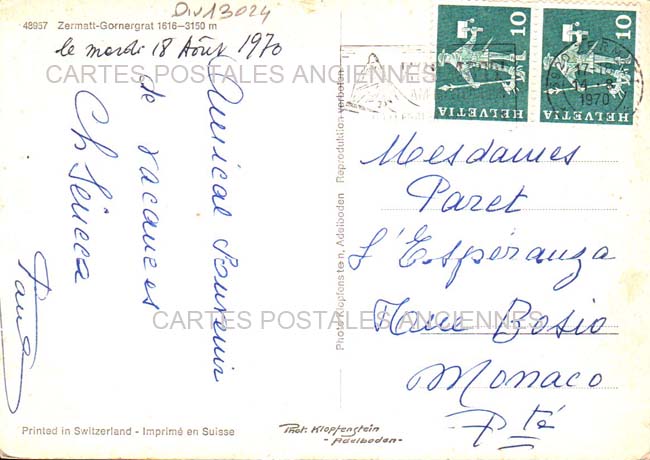 Div13024
48957 Zermatt-Gornergrat 1616–3150 m
le mardi 18 Août 1970
CARTES POSTALES ANCIENNES
Amical Souvenir
de vacances
Photo Klopfenstein, Adelboden Reproduktion verboten
10 10
HELVETIA HELVETIA
17
1970
Mesdames
Paret
L'Espéranza
Bosio
Monaco
Pté
CARTES POSTALES ANCIENNES
Printed in Switzerland - Imprimé en Suisse
Phot. Klopfenstein
- Adelboden -